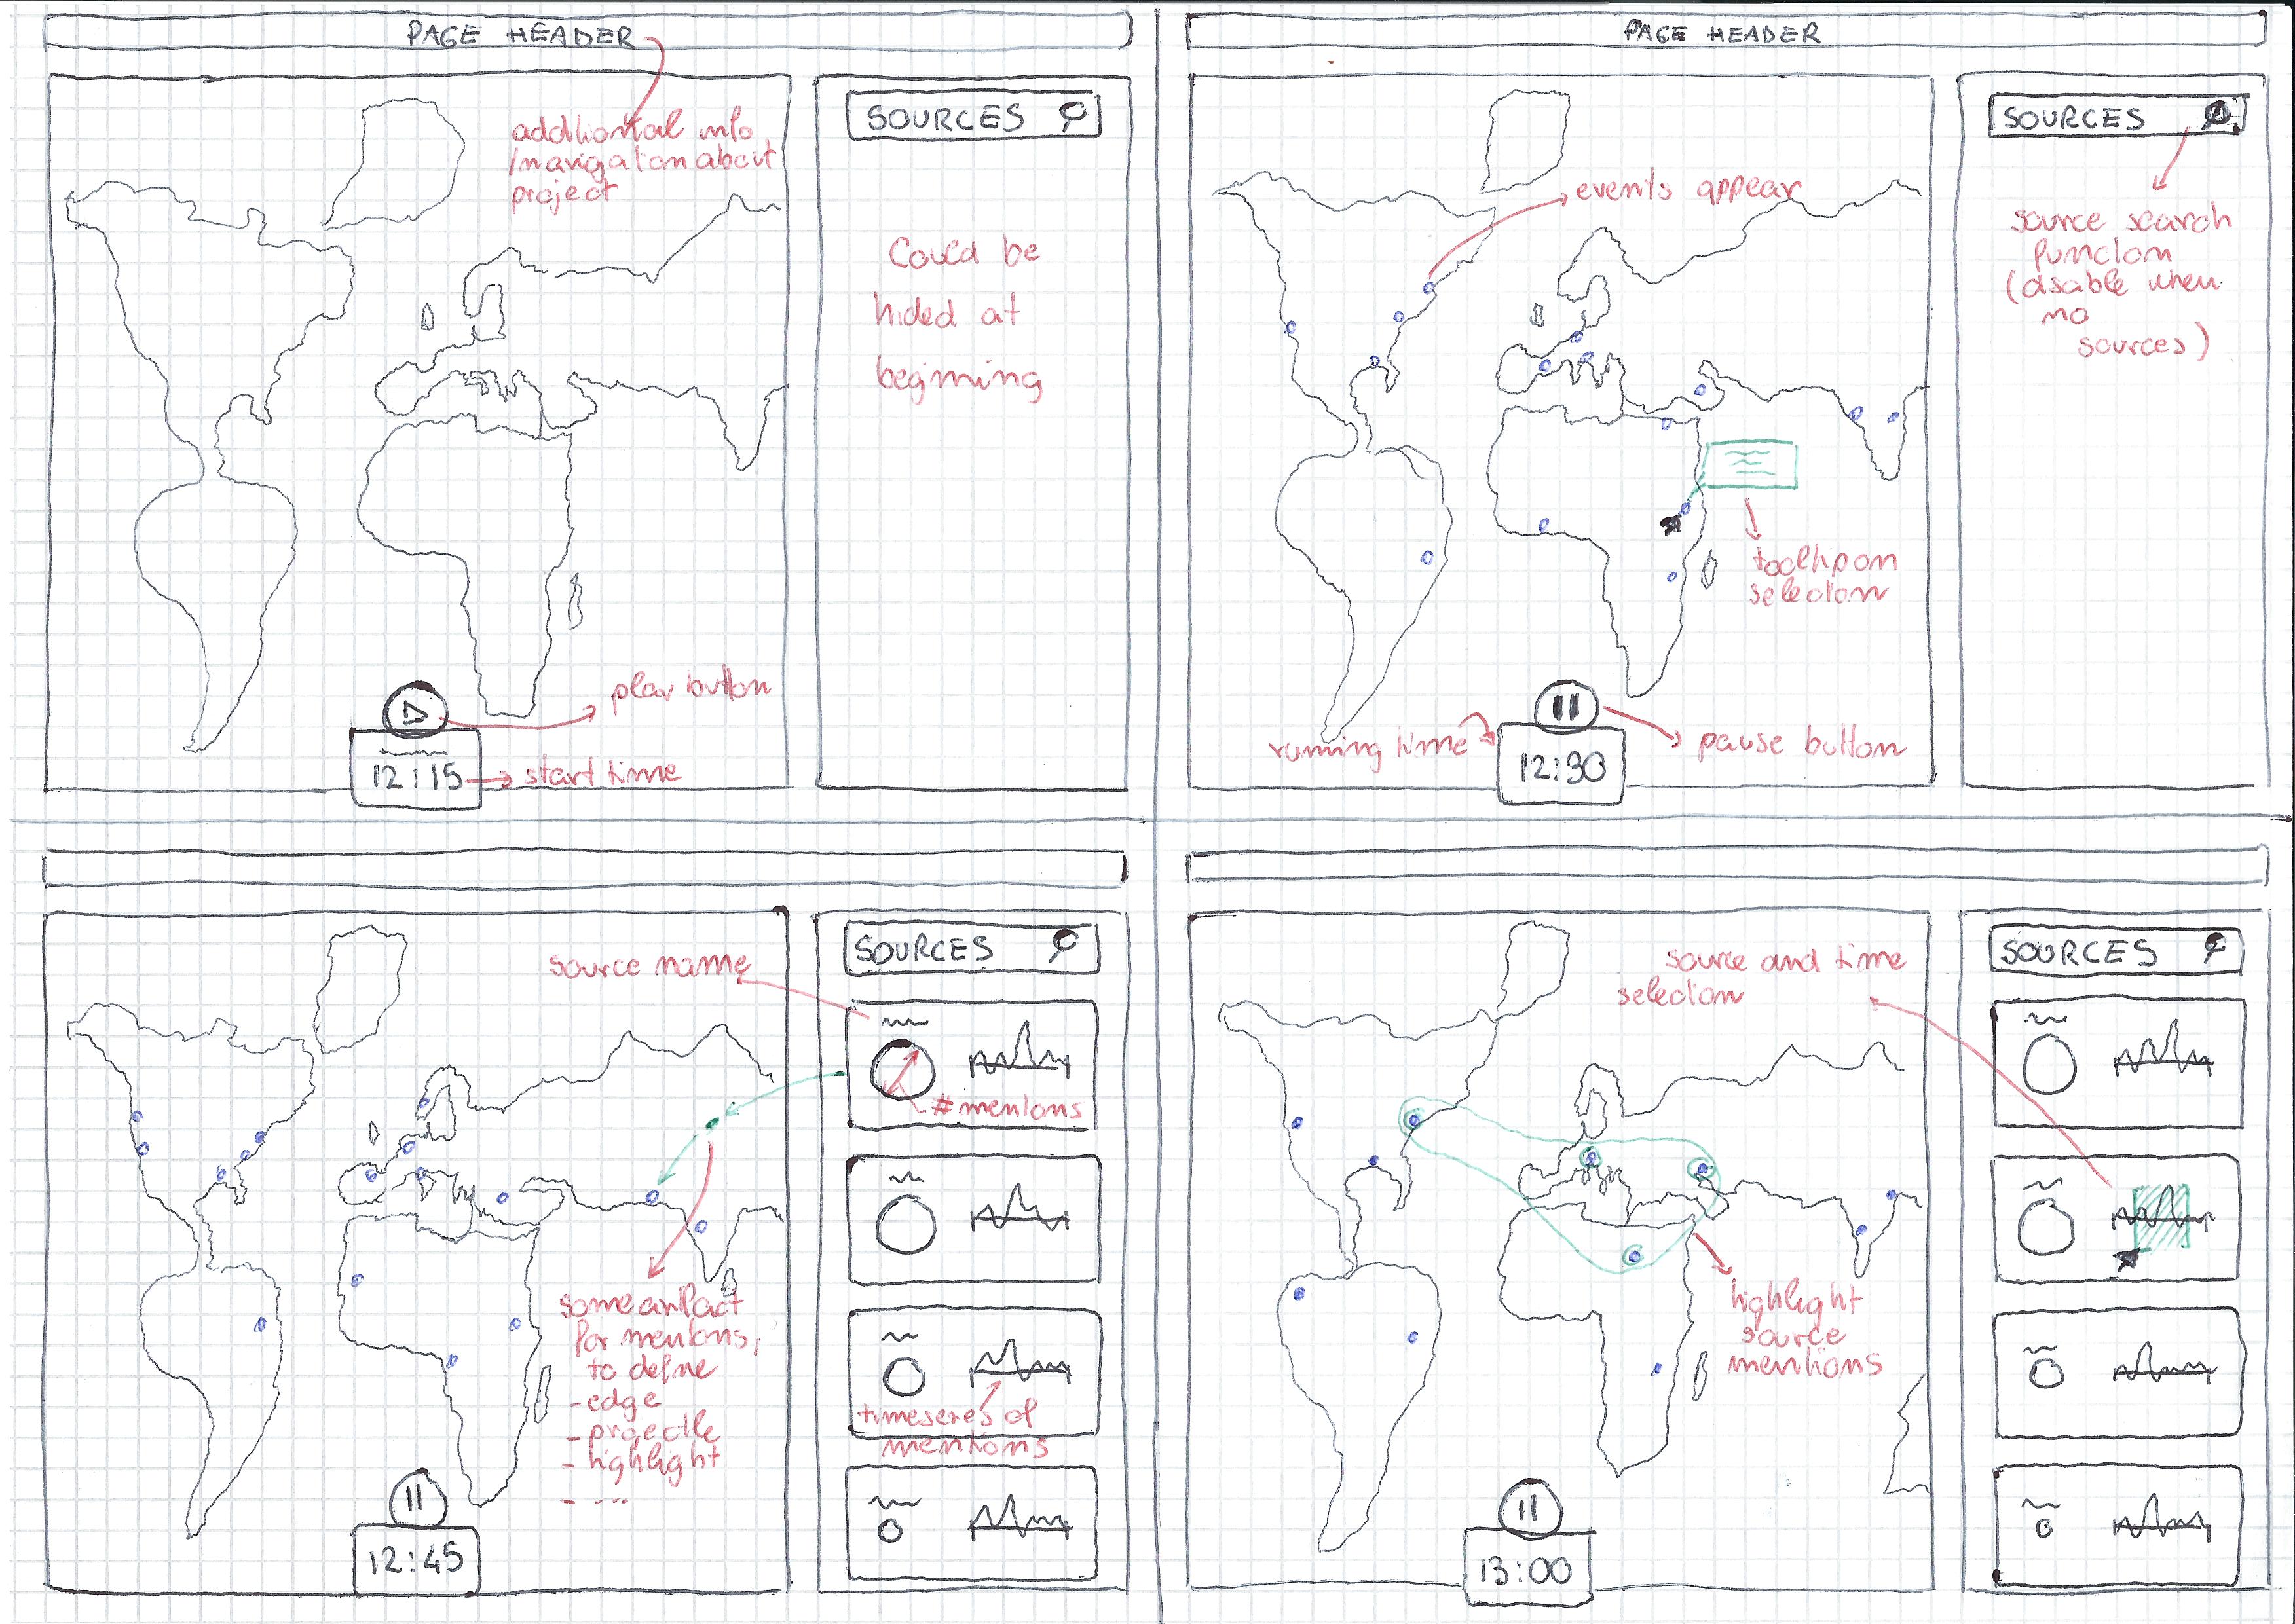 PAGE HEADER
additional info
/navigation about
project
SOURCES
Could be
hided at
beginning
play button
12:15
start time
PAGE HEADER
SOURCES
events appear
source search
function
(disable when
no
sources)
tooltip on
selection
running time
pause button
12:30
SOURCES
source name
# mentions
some artifact
for mentions,
to define
- edge
- projectile
- highlight
- ...
timeseries of
mentions
12:45
SOURCES
source and time
selection
highlight
source
mentions
13:00